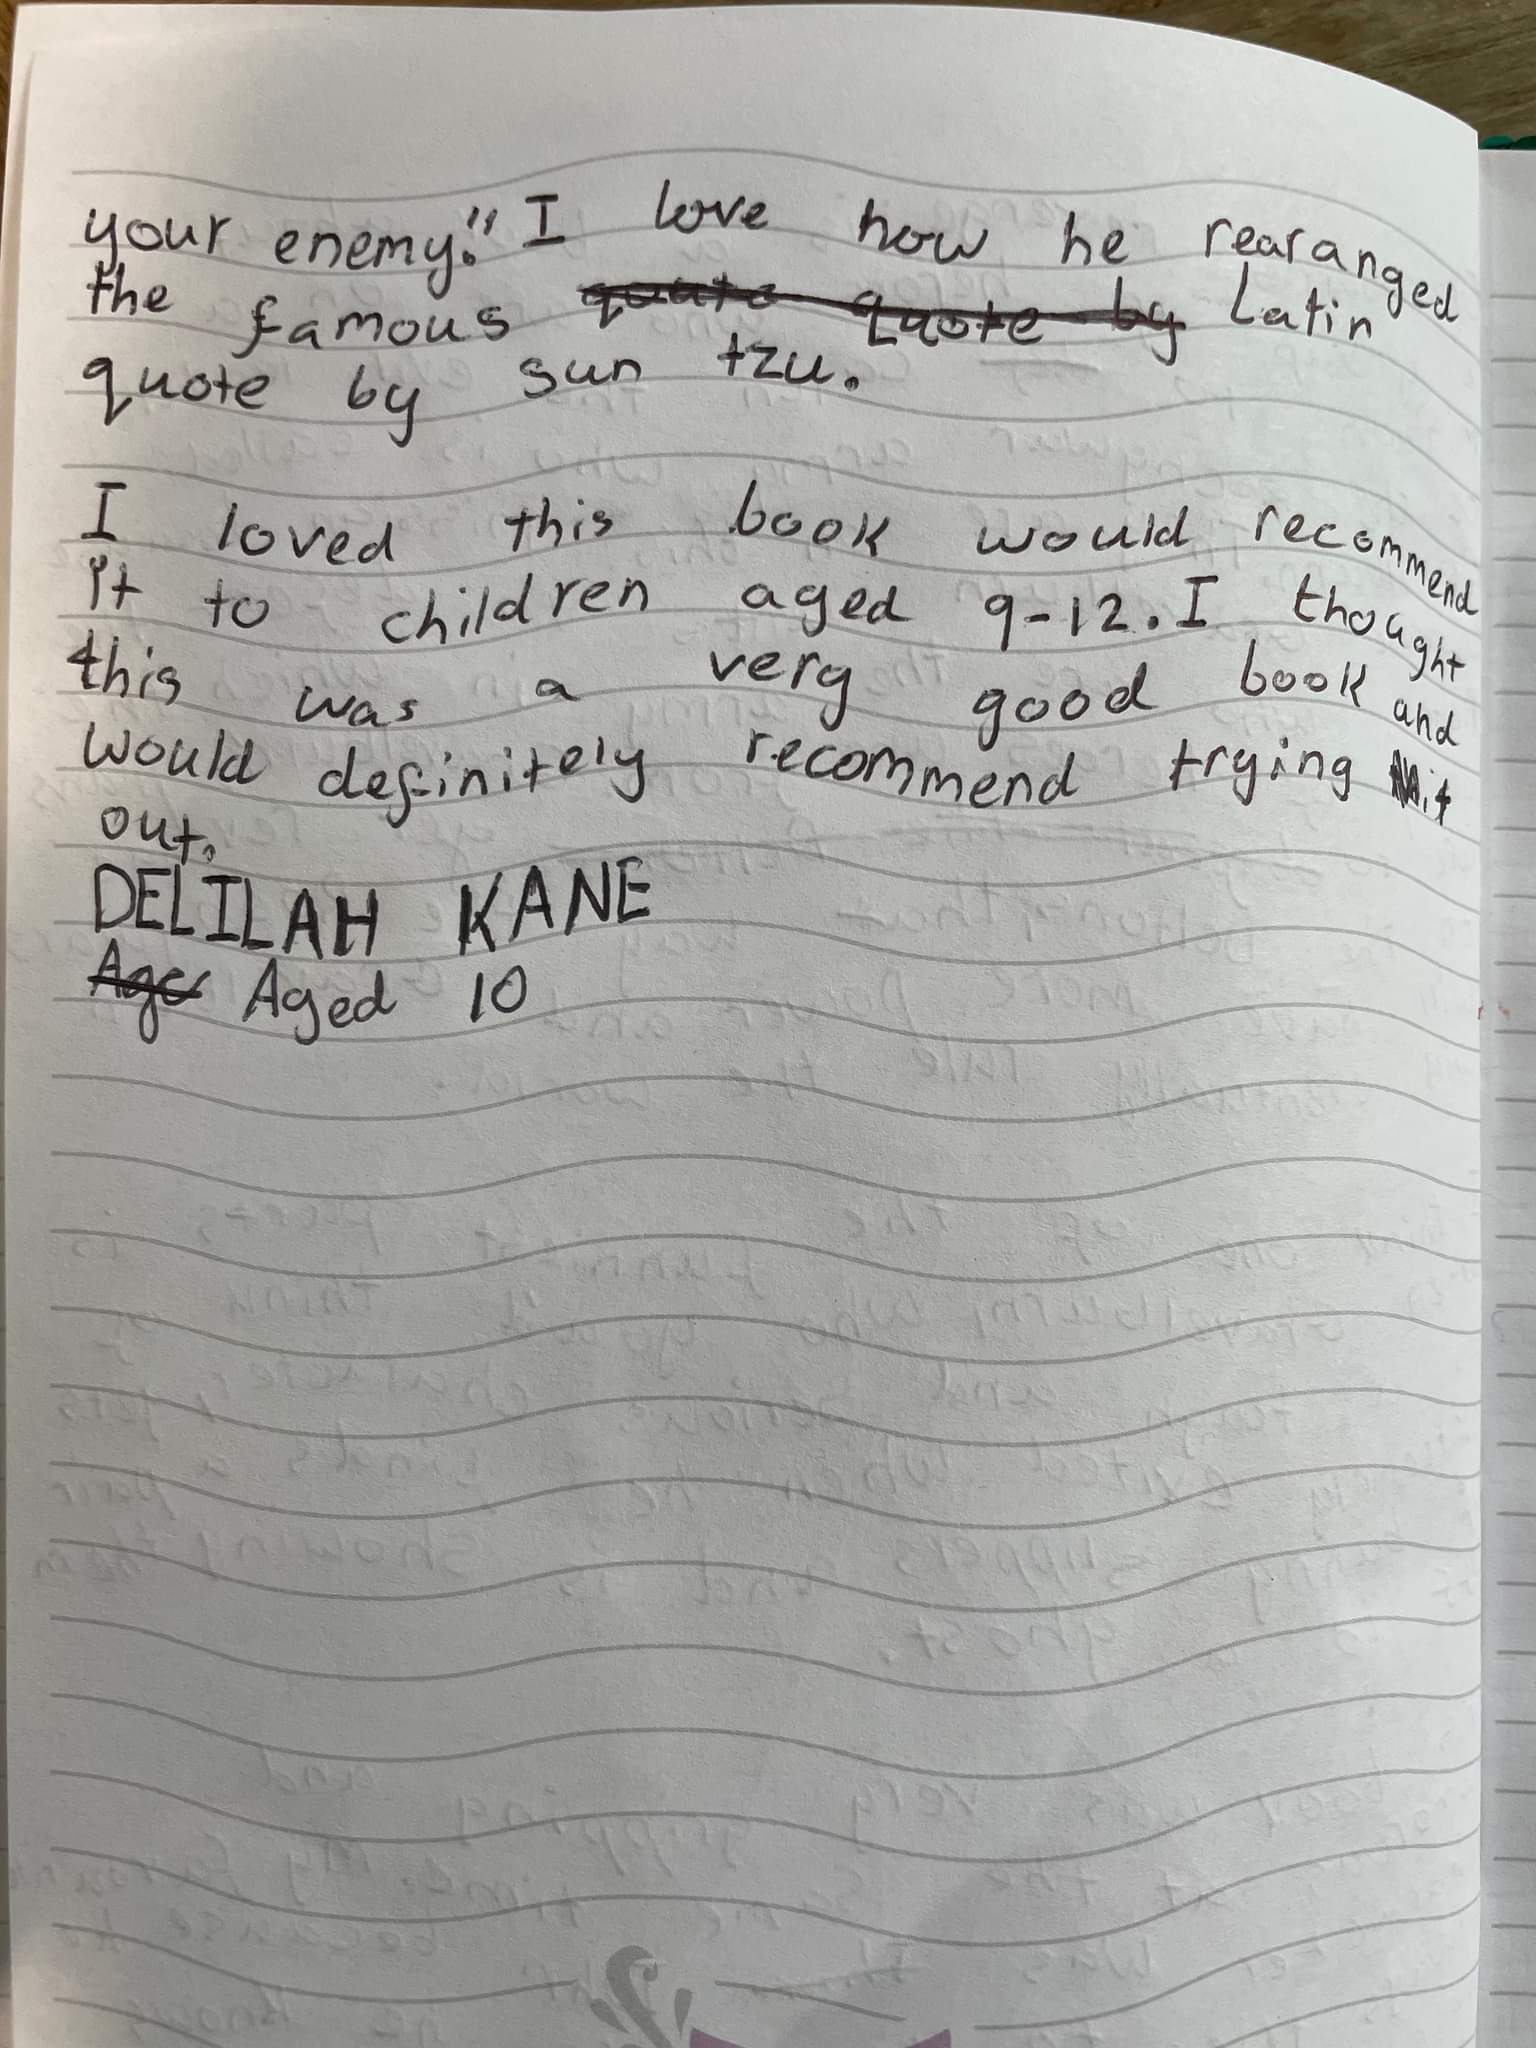 your enemy." I love how he rearanged
the famous quate quote by Latin
quote by sun tzu.
I loved this book would recommend
it to children aged 9-12. I thought
this was a very good book and
would definitely recommend trying it
out.
DELILAH KANE
Age Aged 10